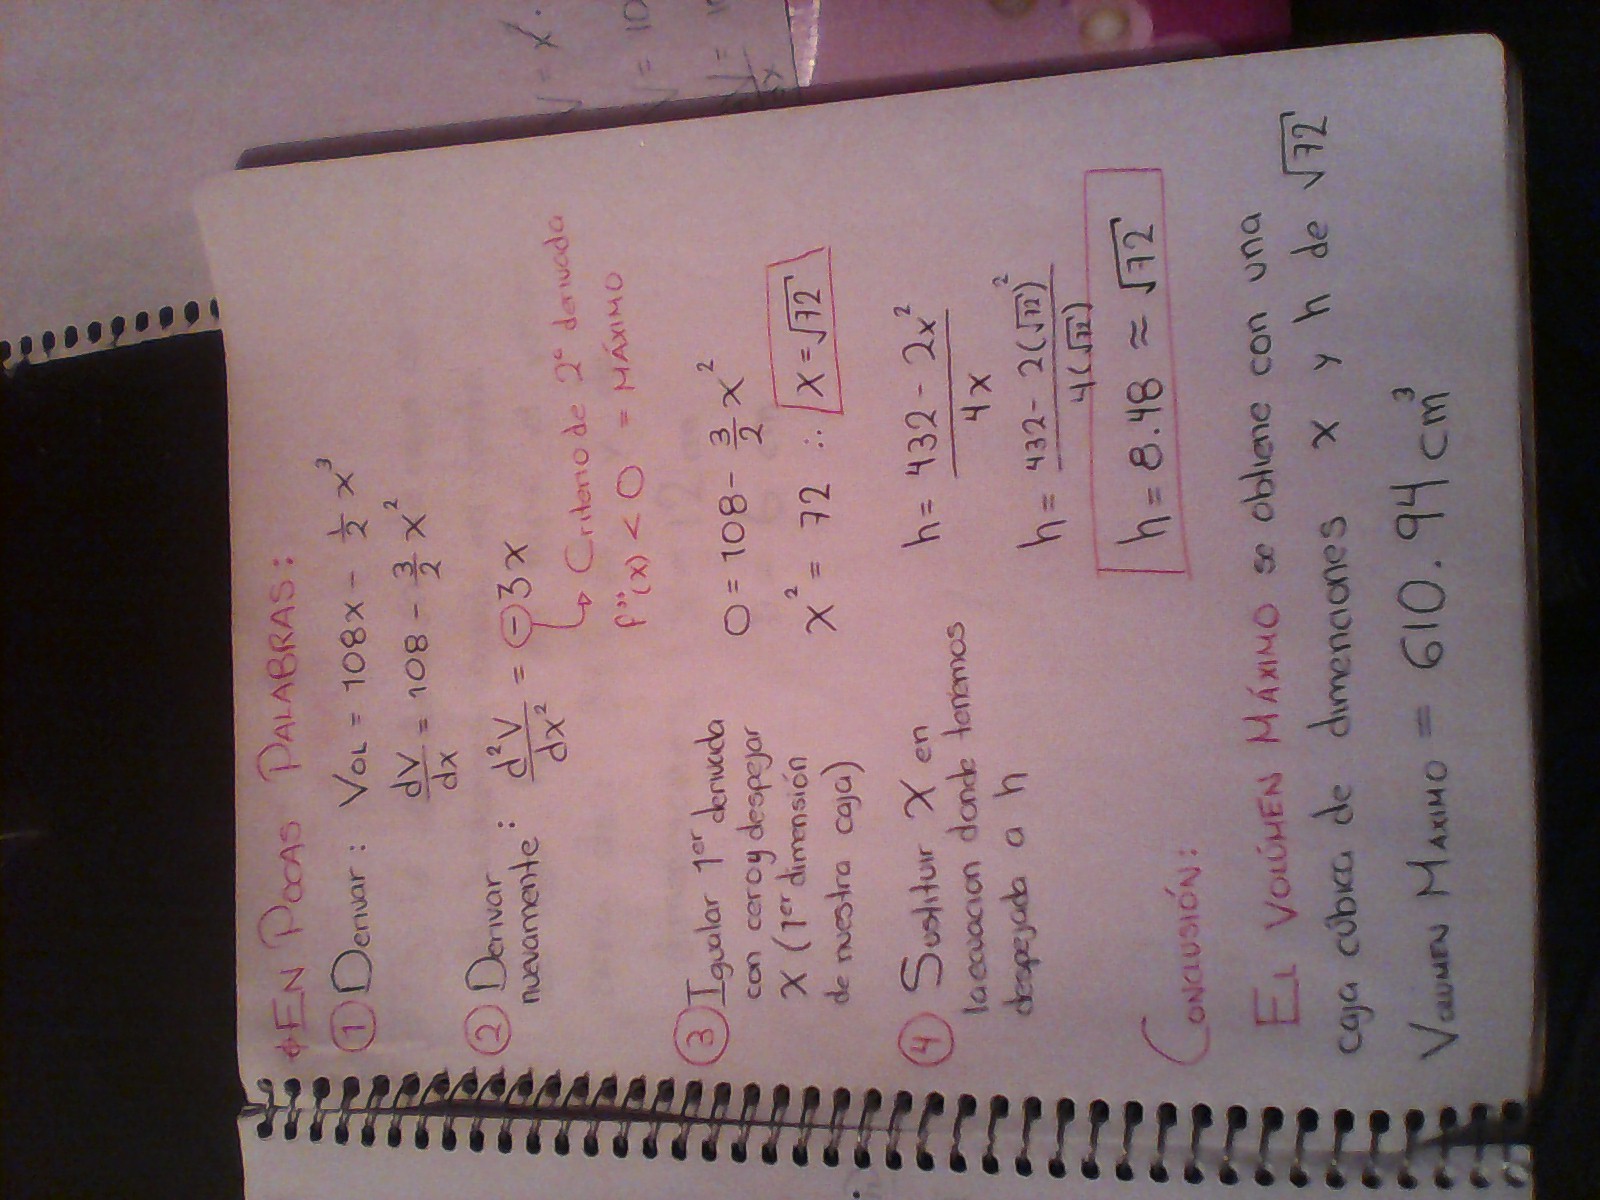 EN POCAS PALABRAS:
1 Derivar: VOL = 108x - 1/2 x³
dV/dx = 108 - 3/2 x²
2 Derivar
nuevamente: d²V/dx² = -3x
Criterio de 2ª derivada
f''(x) < 0 = MÁXIMO
3 Igualar 1er derivada
con cero y despejar
X (1er dimensión
de nuestra caja)
0 = 108 - 3/2 x²
x² = 72 ∴ x = √72
4 Sustituir X en
la ecuacion donde tenemos
despejada a h
h = 432 - 2x² / 4x
h = 432 - 2(√72)² / 4(√72)
h = 8.48 ≈ √72
CONCLUSIÓN:
EL VOLÚMEN MÁXIMO se obtiene con una
caja cúbica de dimenciones x y h de √72
VOLUMEN MAXIMO = 610.94 cm³